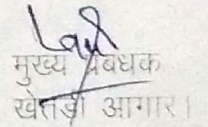 मुख्य प्रबंधक
खेतड़ी आगार।